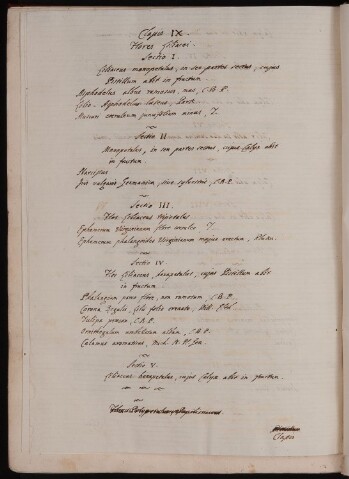 Classis IX.
Flores Liliacei.
Sectio I.
Liliaceus monopetalus, in sex partes sectus, cujus
Pistillum abit in fructum.
Asphodelus albus ramosus, mas, C.B.P.
Lilio-Asphodelus luteus, Park.
Muscari
Sectio II
Monopetalus, in sex partes sectus, cujus Calyx abit
in fructum.
Narcissus
Iris vulgaris Germanica, sive sylvestris, C.B.P.
Sectio III.
Flos Liliaceus tripetalus
Ephemerum Virginianum flore T.
Ephemerum phalangoides Virginianum majus erectum,
Sectio IV.
Flos Liliaceus, hexapetalus, cujus Pistillum abit
in fructum.
Phalangium parvo flore, non ramosum, C.B.P.
Corona Regalis, Lilii folio crenato,
Tulipa C.B.P.
Ornithogalum umbellatum album, C.B.P.
Calamus aromaticus,
Sectio V.
Liliaceus hexapetalus, cujus Calyx abit in fructum.
Classis